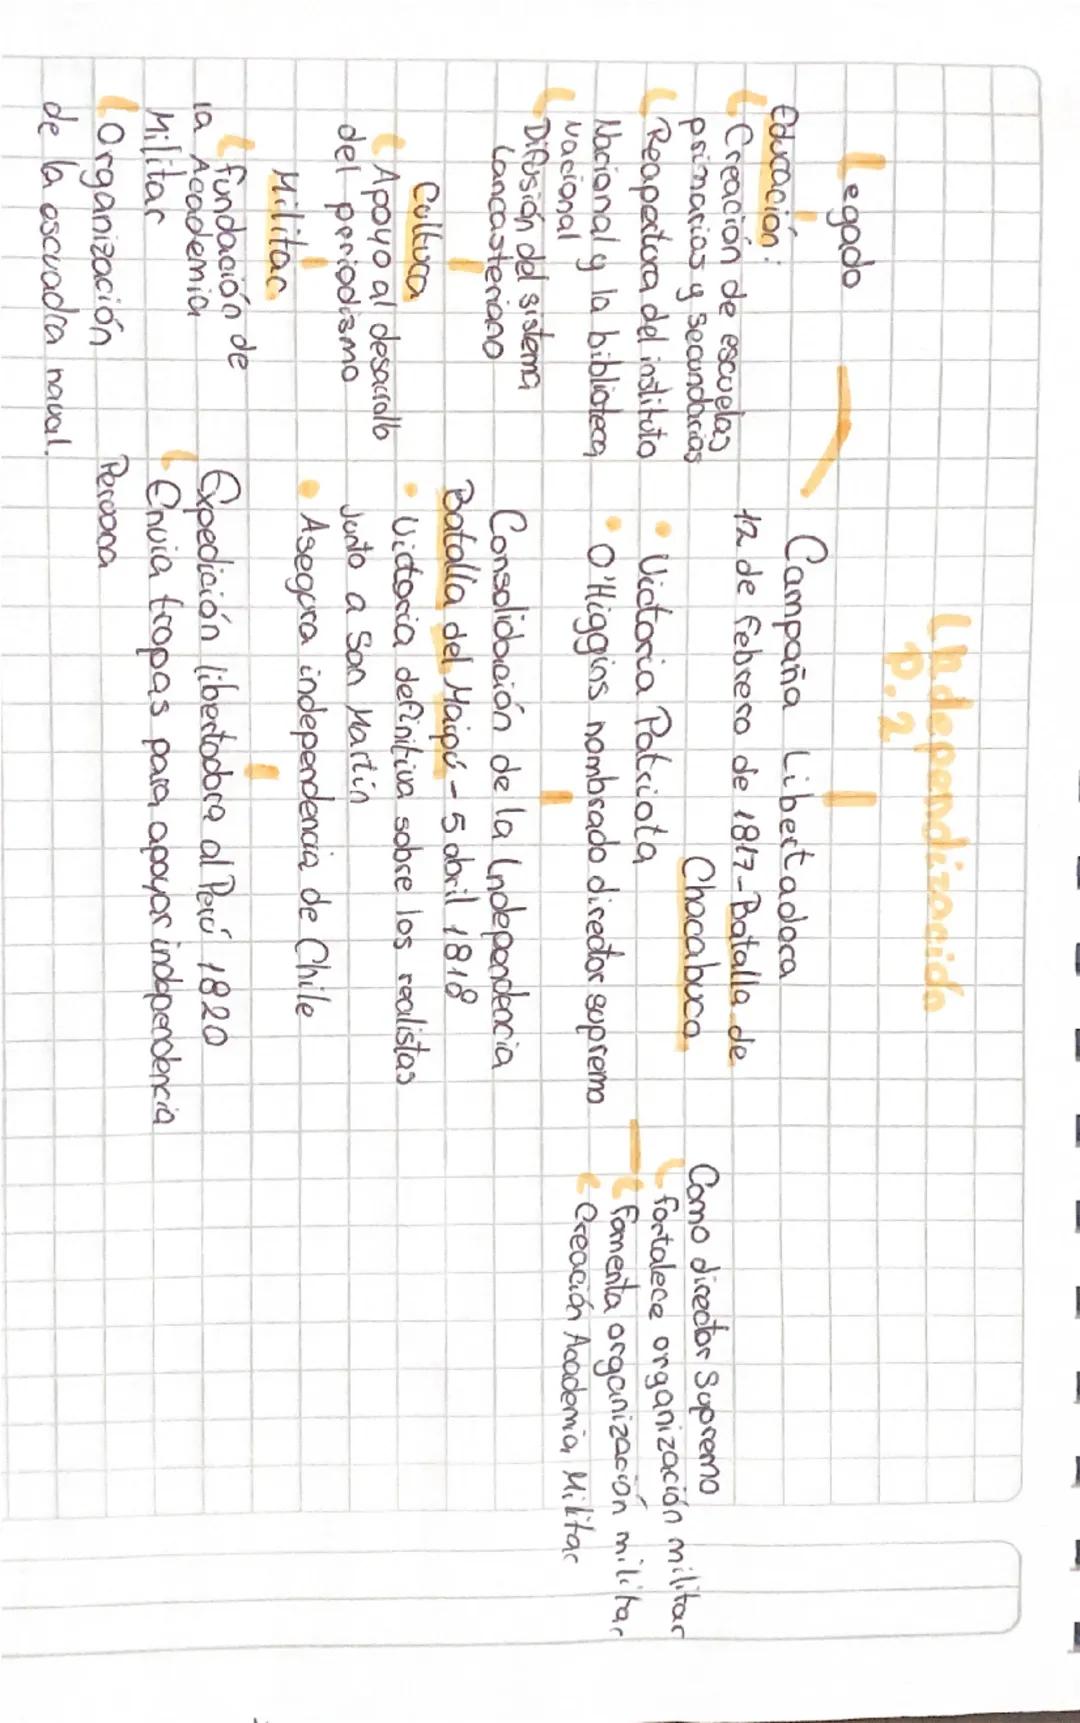 Independización
p.2
Legado
Educación:
Creación de escuelas
primarias y secundarias
Reapertura del instituto
Nacional y la biblioteca
Nacional
Difusión del sistema
Lancasteriano
Cultura
Apoyo al desarrollo
del periodismo
Militar
fundación de
la Academia
Militar
Organización
de la escuadra naval.
Campaña Libertadora
12 de febrero de 1817-Batalla de
Chacabuco
• Victoria Patriota
• O'Higgins nombrado director supremo
Consolidación de la Independencia
Batalla del Maipú - 5 abril 1818
• Victoria definitiva sobre los realistas
Junto a San Martín
• Asegura independencia de Chile
Expedición libertadora al Perú 1820
Envía tropas para apoyar independencia
Peruana
Como director Supremo
fortalece organización militar
fomenta organización militar
Creación Academia Militar